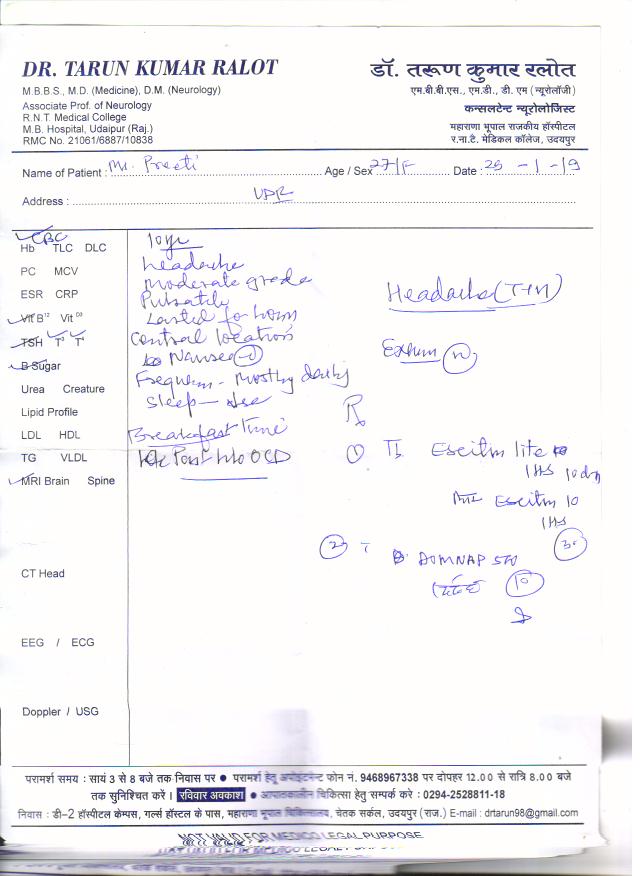 DR. TARUN KUMAR RALOT
M.B.B.S., M.D. (Medicine), D.M. (Neurology)
Associate Prof. of Neurology
R.N.T. Medical College
M.B. Hospital, Udaipur (Raj.)
RMC No. 21061/6887/10838
डॉ. तरूण कुमार रलोत
एम.बी.बी.एस., एम.डी., डी. एम (न्यूरोलॉजी)
कन्सलटेन्ट न्यूरोलोजिस्ट
महाराणा भूपाल राजकीय हॉस्पीटल
र.ना.टै. मेडिकल कॉलेज, उदयपुर
Name of Patient : Preeti Age / Sex 27/F Date : 25 - 1 - 19
Address : UPR
CBC
Hb TLC DLC
PC MCV
ESR CRP
Vit B12 Vit D3
TSH T3 T4
B Sugar
Urea Creature
Lipid Profile
LDL HDL
TG VLDL
MRI Brain Spine
CT Head
EEG / ECG
Doppler / USG
10 yr
headache
moderate grade
Pulsatile
Lasted for hours
Central location
Nausea
Frequency - mostly daily
Sleep -
Breakfast Time
Past h/o OCD
Headache
Rx
① Escitm lite
1HS 10
Escitm 10
1HS
30
② DOMNAP 500
10
परामर्श समय : सायं 3 से 8 बजे तक निवास पर ● परामर्श हेतु अपोइन्टमेन्ट फोन नं. 9468967338 पर दोपहर 12.00 से रात्रि 8.00 बजे
तक सुनिश्चित करें । रविवार अवकाश ● आपातकालीन चिकित्सा हेतु सम्पर्क करे : 0294-2528811-18
निवास : डी–2 हॉस्पीटल केम्पस, गर्ल्स हॉस्टल के पास, महाराणा भूपाल चिकित्सालय, चेतक सर्कल, उदयपुर (राज.) E-mail : drtarun98@gmail.com
NOT VALID FOR MEDICO LEGAL PURPOSE